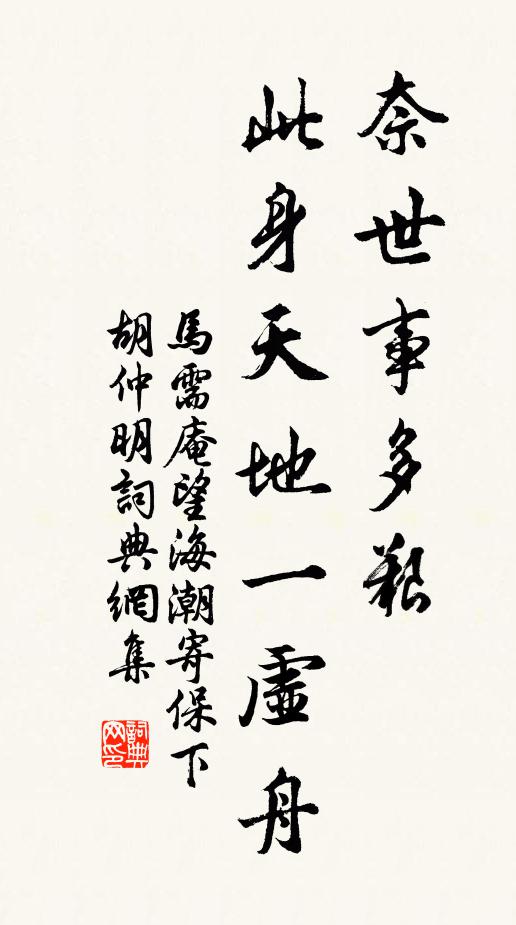 奈世事多艱
此身天地一虛舟
馬需庵望海潮寄保下
胡仲明詞典網集
詞典網印